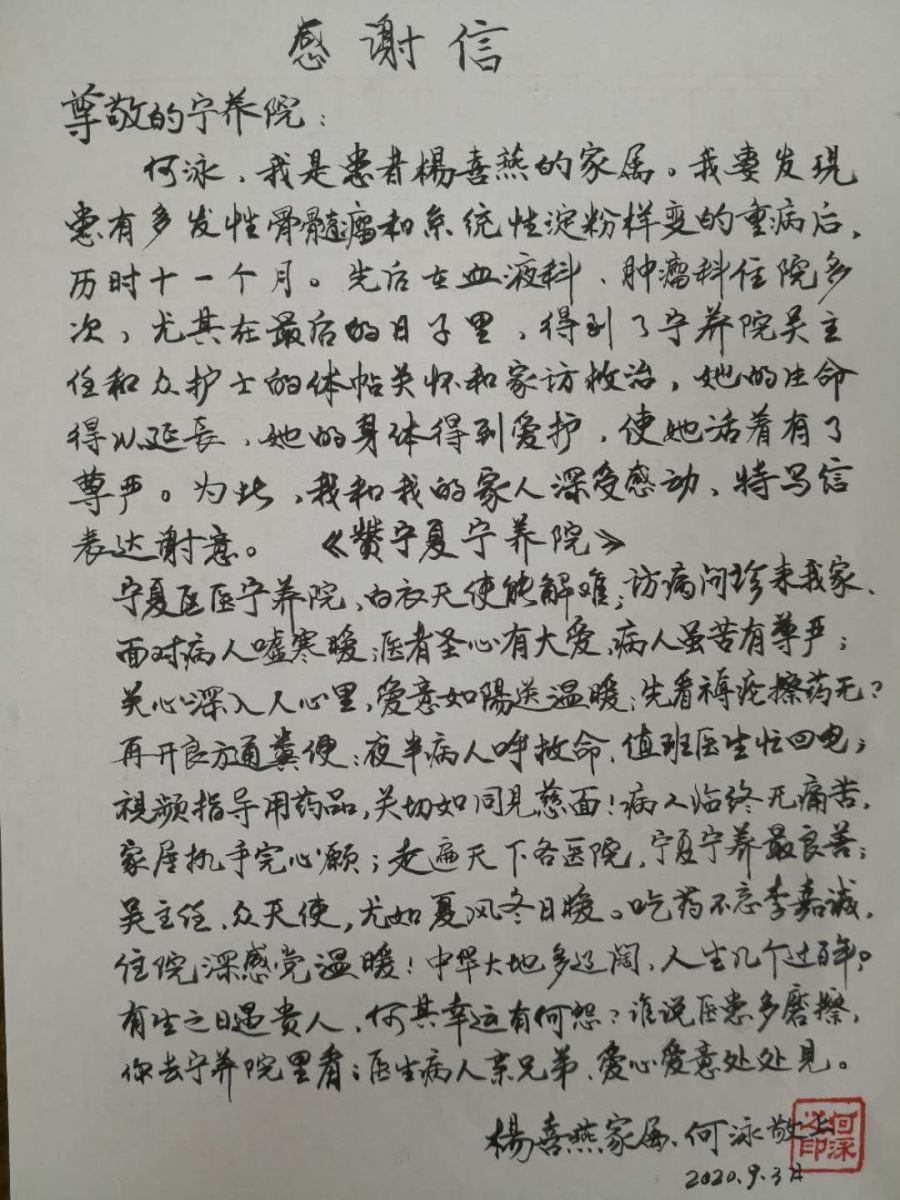 感谢信
尊敬的宁养院：
何泳，我是患者楊喜燕的家属。我妻发现
患有多发性骨髓瘤和系统性淀粉样变的重病后，
历时十一个月。先后在血液科、肿瘤科住院多
次，尤其在最后的日子里，得到了宁养院吴主
任和众护士的体帖关怀和家访救治，她的生命
得以延長，她的身体得到爱护，使她活着有了
尊严。为此，我和我的家人深受感动、特写信
表达谢意。 《赞宁夏宁养院》
宁夏医医宁养院、白衣天使能解难；访病问珍来我家、
面对病人嘘寒暖；医者圣心有大爱，病人虽苦有尊严；
关心深入人心里，爱意如陽送温暖；先看褥疮擦药无？
再开良方通粪便；夜半病人呼救命、值班医生忙回电；
视频指导用药品，关切如同见慈面！病人临终无痛苦，
家居执手完心愿；走遍天下各医院，宁夏宁养最良善；
吴主任、众天使，尤如夏风冬日暖。吃药不忘李嘉诚，
住院深感党温暖！中华大地多辽阔，人生几个过百年？
有生之日遇贵人，何其幸运有何怨？谁说医患多磨擦，
你去宁养院里看；医生病人亲兄弟、爱心爱意处处见。
楊喜燕家属、何泳敬上
何泳之印
2020.9.3日